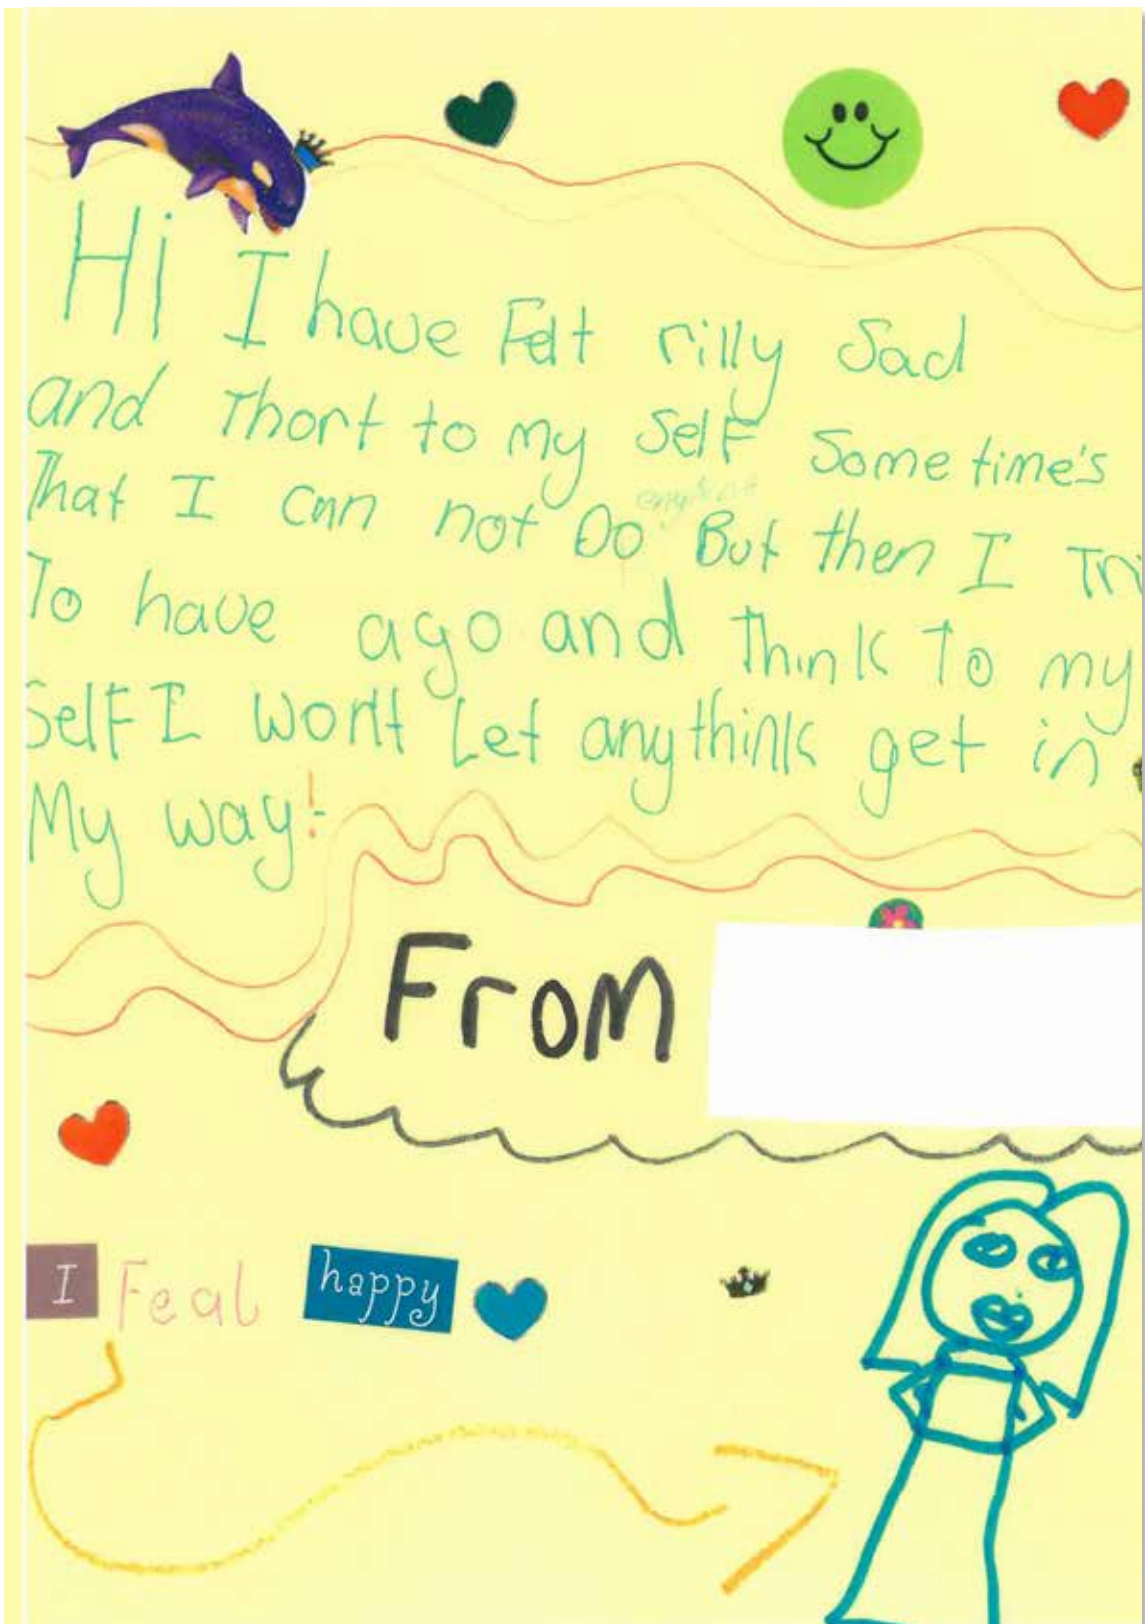 Hi I have Felt rilly Sad
and Thort to my Self Sometime's
That I can not Do But then I
To have ago and Think To my
Self I won't Let anythink get in
My way!
From
I Feal happy